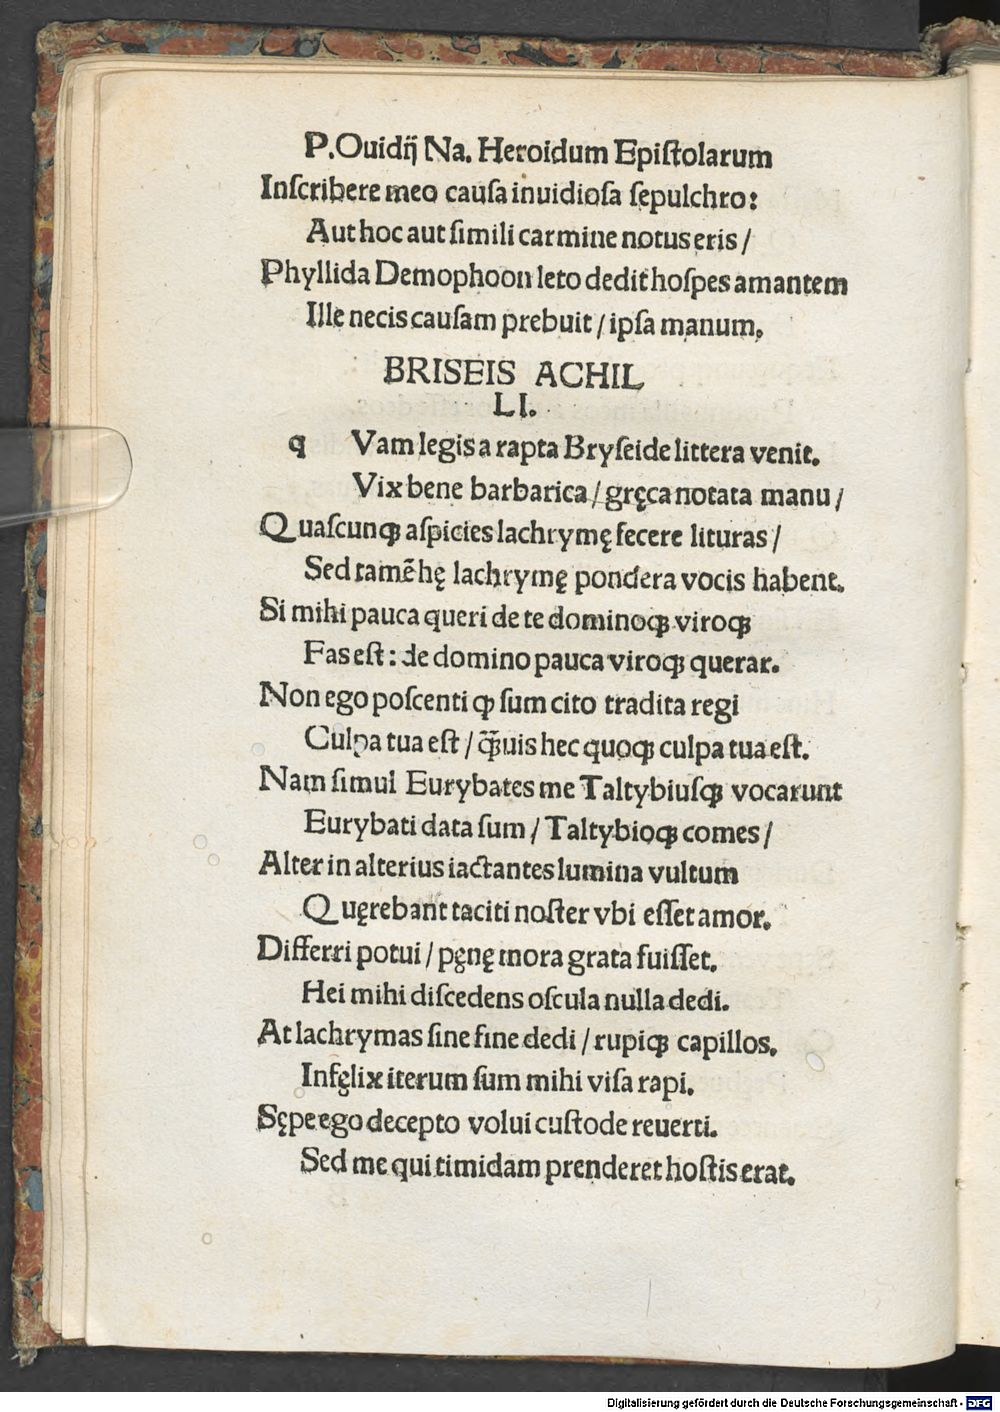 P. Ouidij Na. Heroidum Epiſtolarum
Inſcribere meo cauſa inuidioſa ſepulchro:
Aut hoc aut ſimili carmine notus eris /
Phyllida Demophoon leto dedit hoſpes amantem
Ille necis cauſam prebuit / ipſa manum,
BRISEIS ACHIL
LI.
q Vam legis a rapta Bryſeide littera venit.
Vix bene barbarica / gręca notata manu /
Quaſcunqꝫ aſpicies lachrymę fecere lituras /
Sed tamē hę lachrymę pondera vocis habent.
Si mihi pauca queri de te dominoqꝫ viroqꝫ
Fas eſt: de domino pauca viroqꝫ querar.
Non ego poſcenti ꝙ ſum cito tradita regi
Culpa tua eſt / ꝙ̃uis hec quoqꝫ culpa tua eſt.
Nam ſimul Eurybates me Taltybiuſqꝫ vocarunt
Eurybati data ſum / Taltybioqꝫ comes /
Alter in alterius iactantes lumina vultum
Quęrebant taciti noſter vbi eſſet amor.
Differri potui / pęnę mora grata fuiſſet.
Hei mihi diſcedens oſcula nulla dedi.
At lachrymas ſine fine dedi / rupiqꝫ capillos.
Infęlix iterum ſum mihi viſa rapi.
Sępe ego decepto volui cuſtode reuerti.
Sed me qui timidam prenderet hoſtis erat.
Digitalisierung gefördert durch die Deutsche Forschungsgemeinschaft - DFG